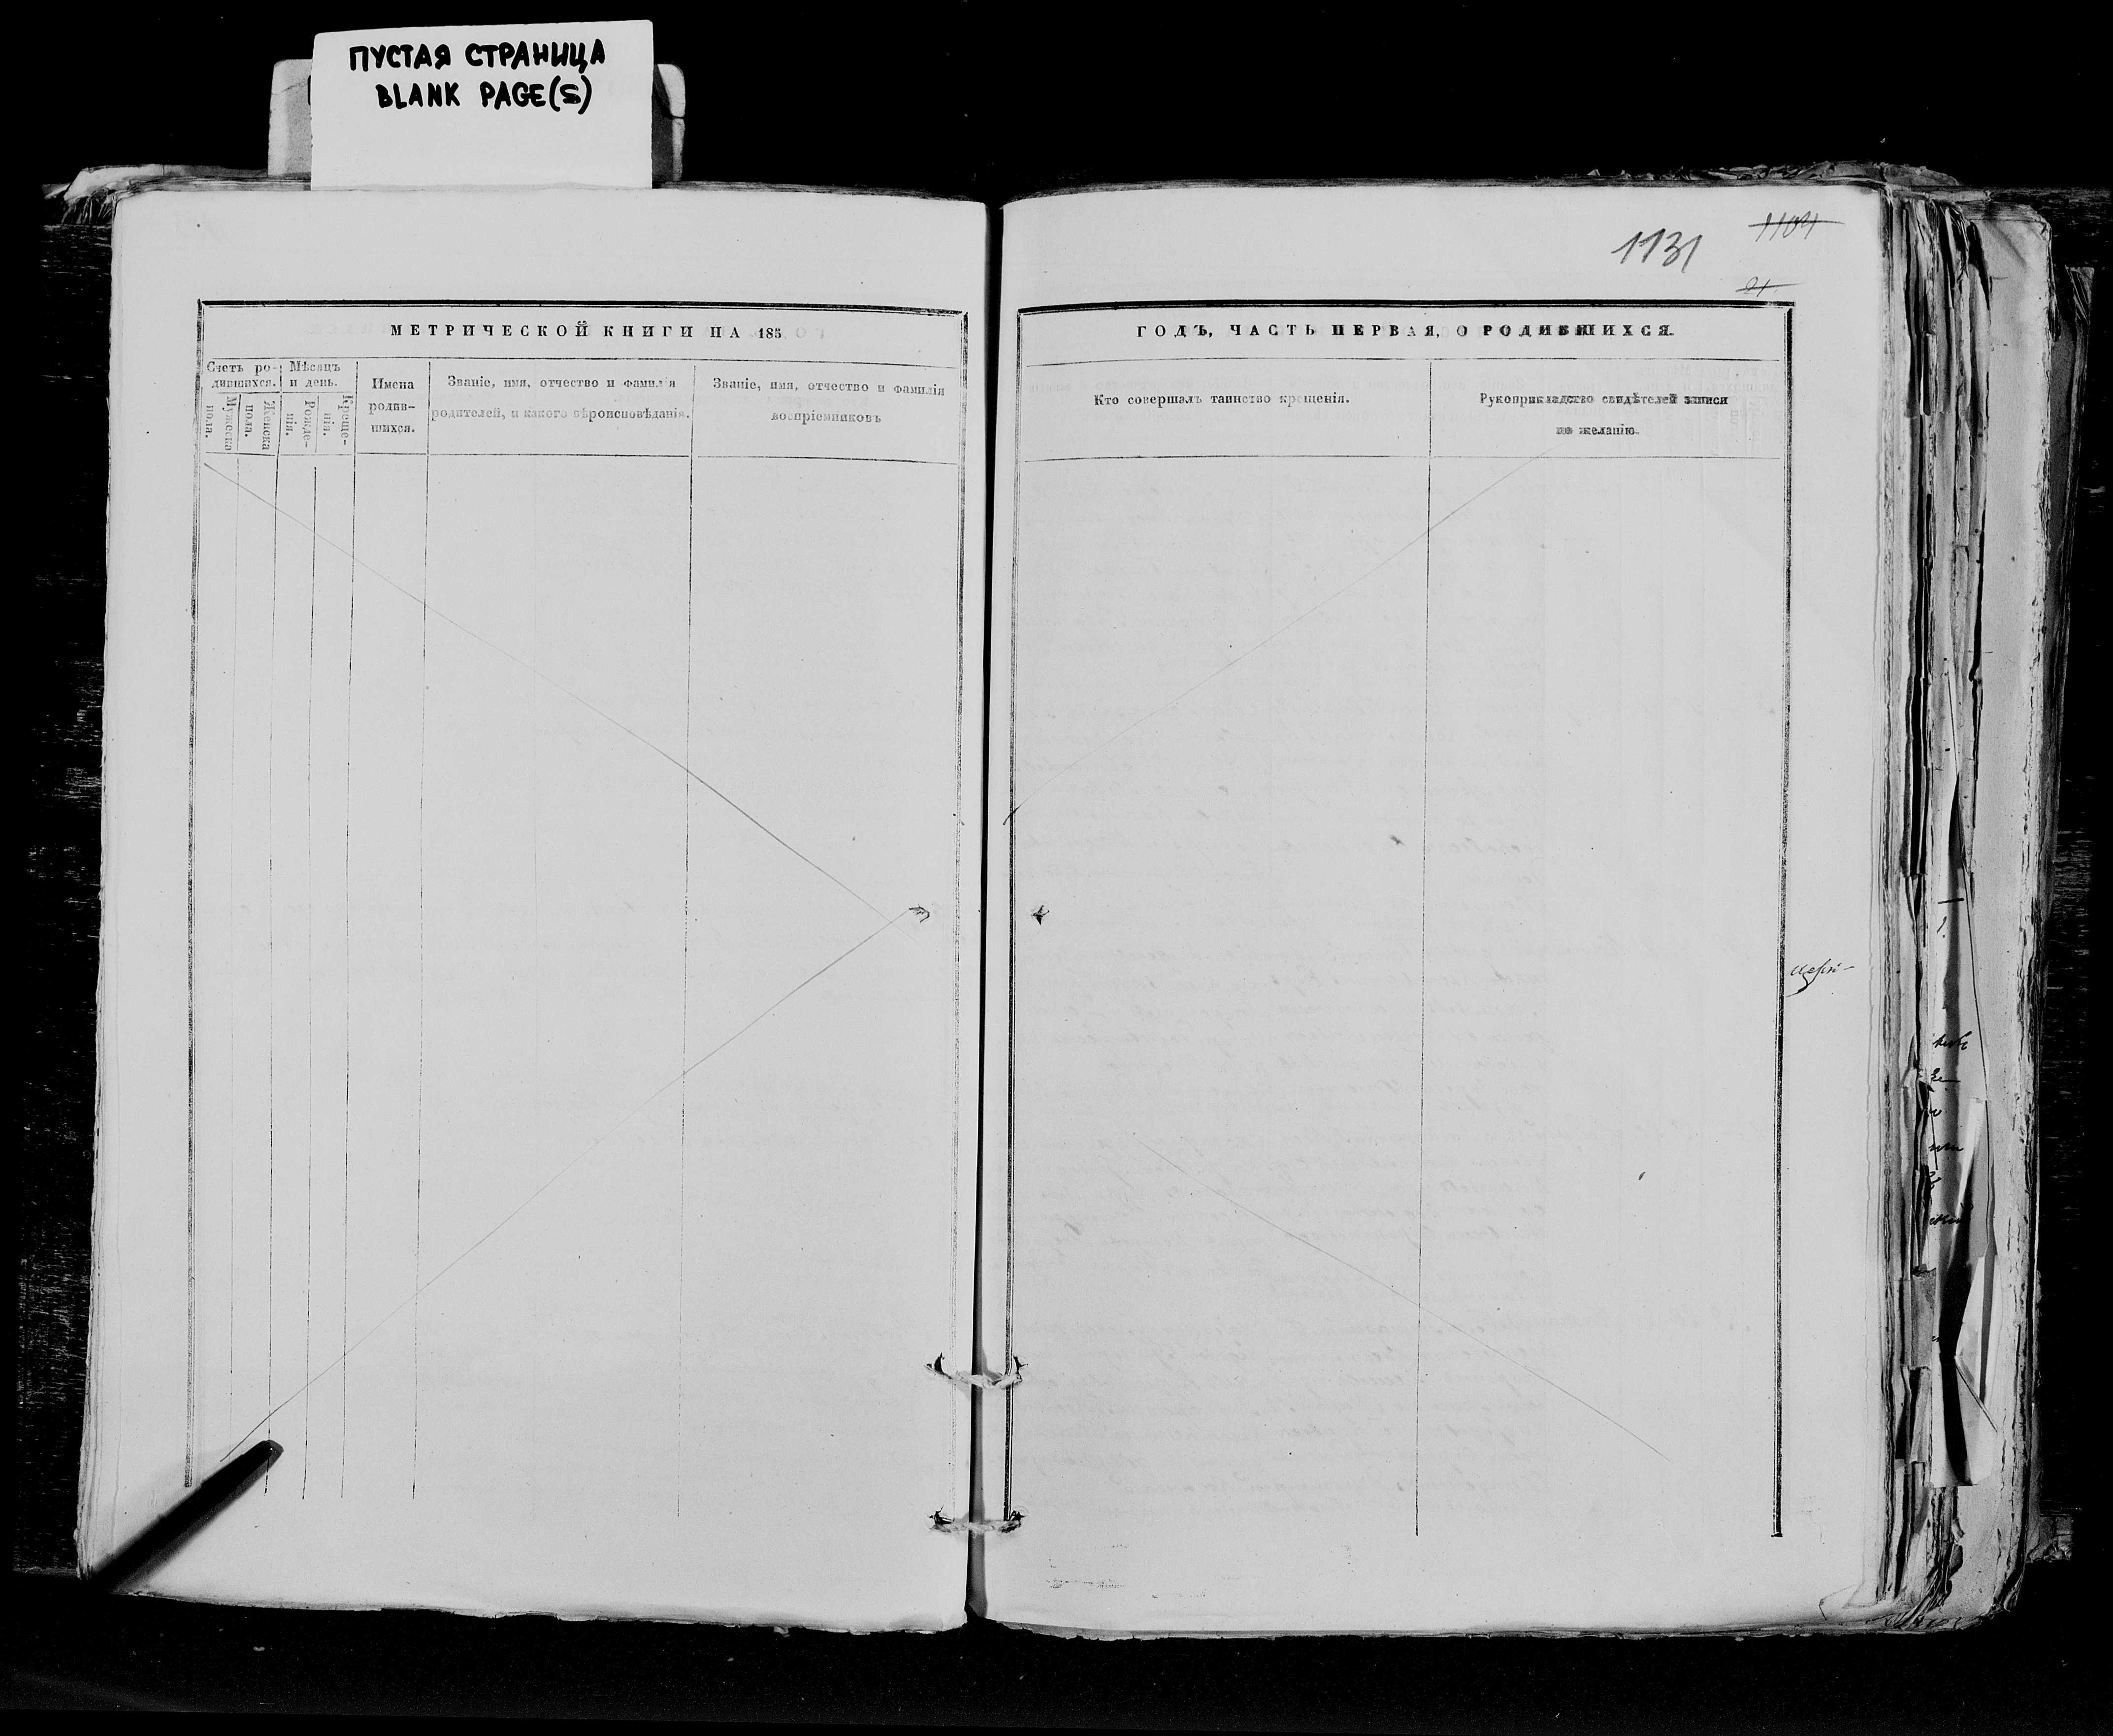 ПУСТАЯ СТРАНИЦА
BLANK PAGE(S)
МЕТРИЧЕСКОЙ КНИГИ НА 185
Счетъ ро-
дившихся.
Мѣсяцъ
и день.
Мужеска
пола.
Женска
пола.
Рожде-
нія.
Креще-
нія.
Имена
родив-
шихся.
Званіе, имя, отчество и фамилія
родителей, и какого вѣроисповѣданія.
Званіе, имя, отчество и фамилія
воспріемниковъ
1131
1104
21
ГОДЪ, ЧАСТЬ ПЕРВАЯ, О РОДИВШИХСЯ.
Кто совершалъ таинство крещенія.
Рукоприкладство свидѣтелей записи
по желанію.